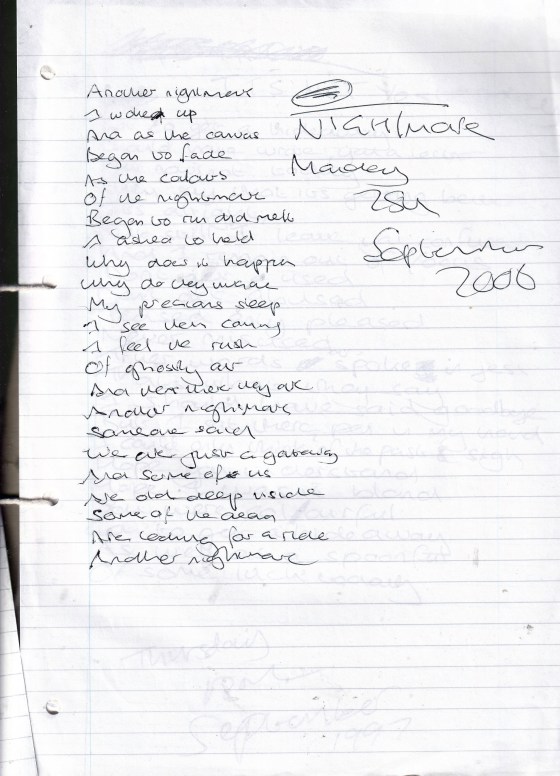 NIGHTMARE
Monday
25th
September
2006
Another nightmare
I woke up
And as the canvas
Began to fade
As the colours
Of the nightmare
Began to run and melt
I asked to held
Why does it happen
Why do they invade
My precious sleep
I see them coming
I feel the rush
Of ghostly air
And then there they are
Another nightmare
Someone said
We are just a gateway
And some of us
Are old deep inside
Some of the dead
Are looking for a ride
Another nightmare